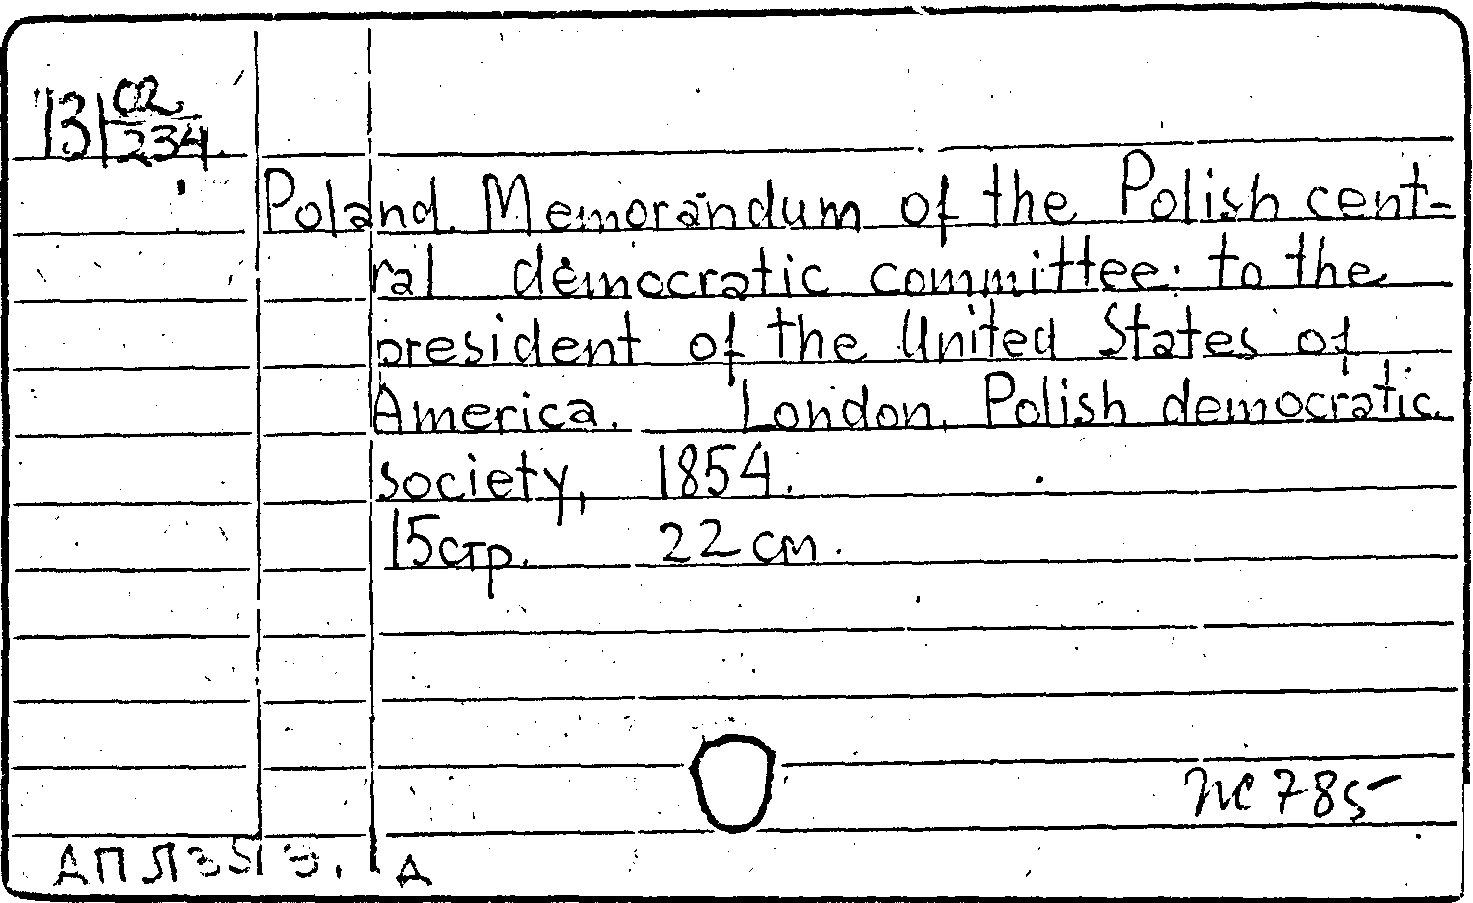 13 02
234
Poland. Memorandum of the Polish cent-
ral democratic committee: to the
president of the United States of
America. London, Polish democratic
society, 1854.
15стр. 22 см.
ПС 785